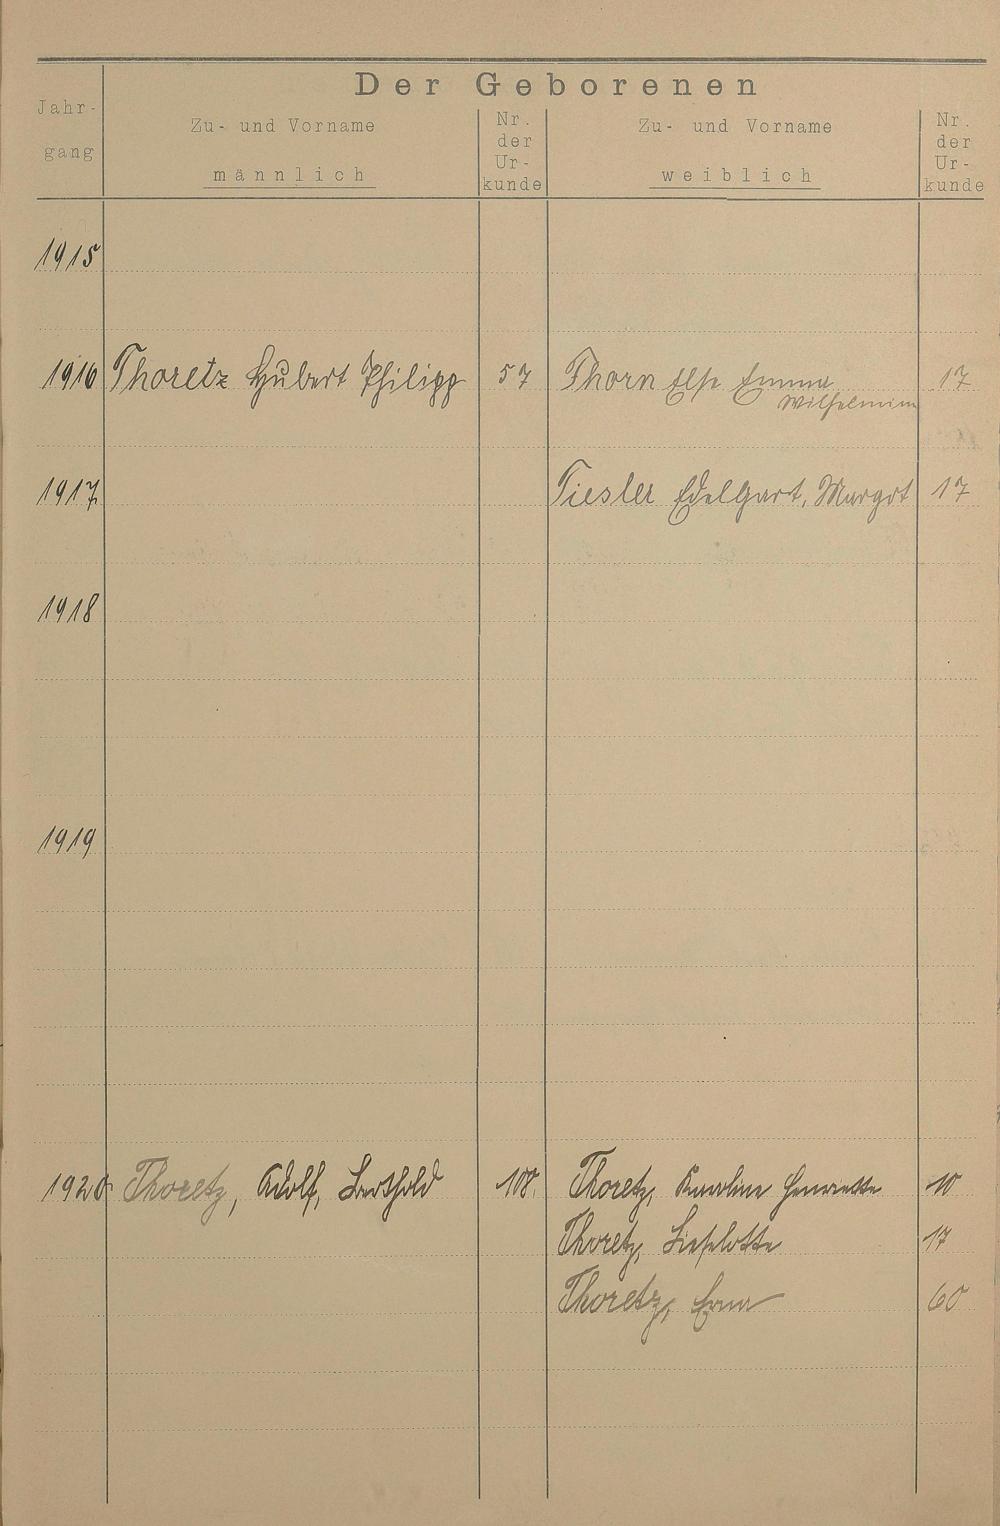 Der Geborenen
Jahr-
gang
Zu- und Vorname
männlich
Nr.
der
Ur-
kunde
Zu- und Vorname
weiblich
Nr.
der
Ur-
kunde
1915
1916 Thoretz Hubert Philipp 57 Thorn Else Emma 17
Wilhelmine
1917 Tiesler Edelgart, Margot 17
1918
1919
1920 Thoretz, Adolf, Berthold 108. Thoretz, Karoline Henriette 10
Thoretz, Lieselotte 17
Thoretz, Erna 60